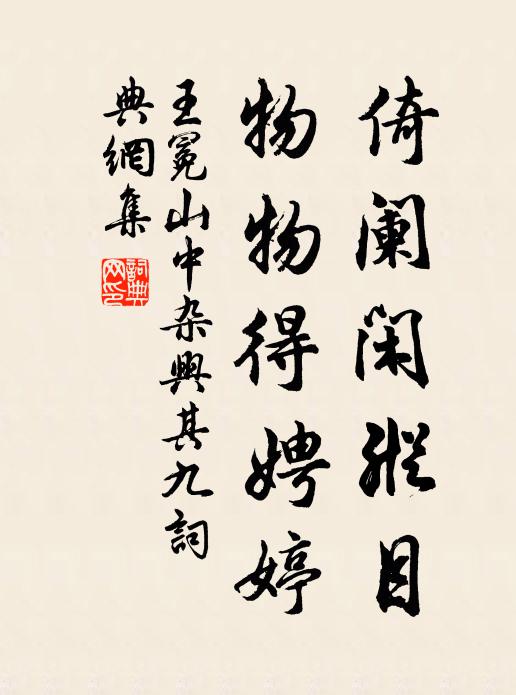 倚阑闲纵目
物物得娉婷
王冕山中杂興其九詞
典網集
詞典网印